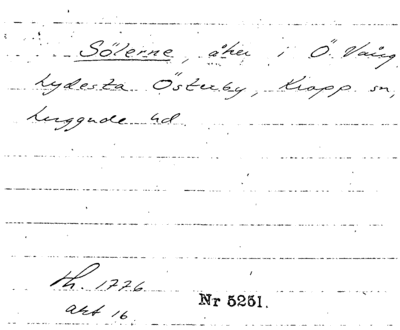 Sölerne, åker i Ö. Vång
Lydesta Österby, Kropp sn,
Luggude hd
Th. 1776
akt 16
Nr 5251.